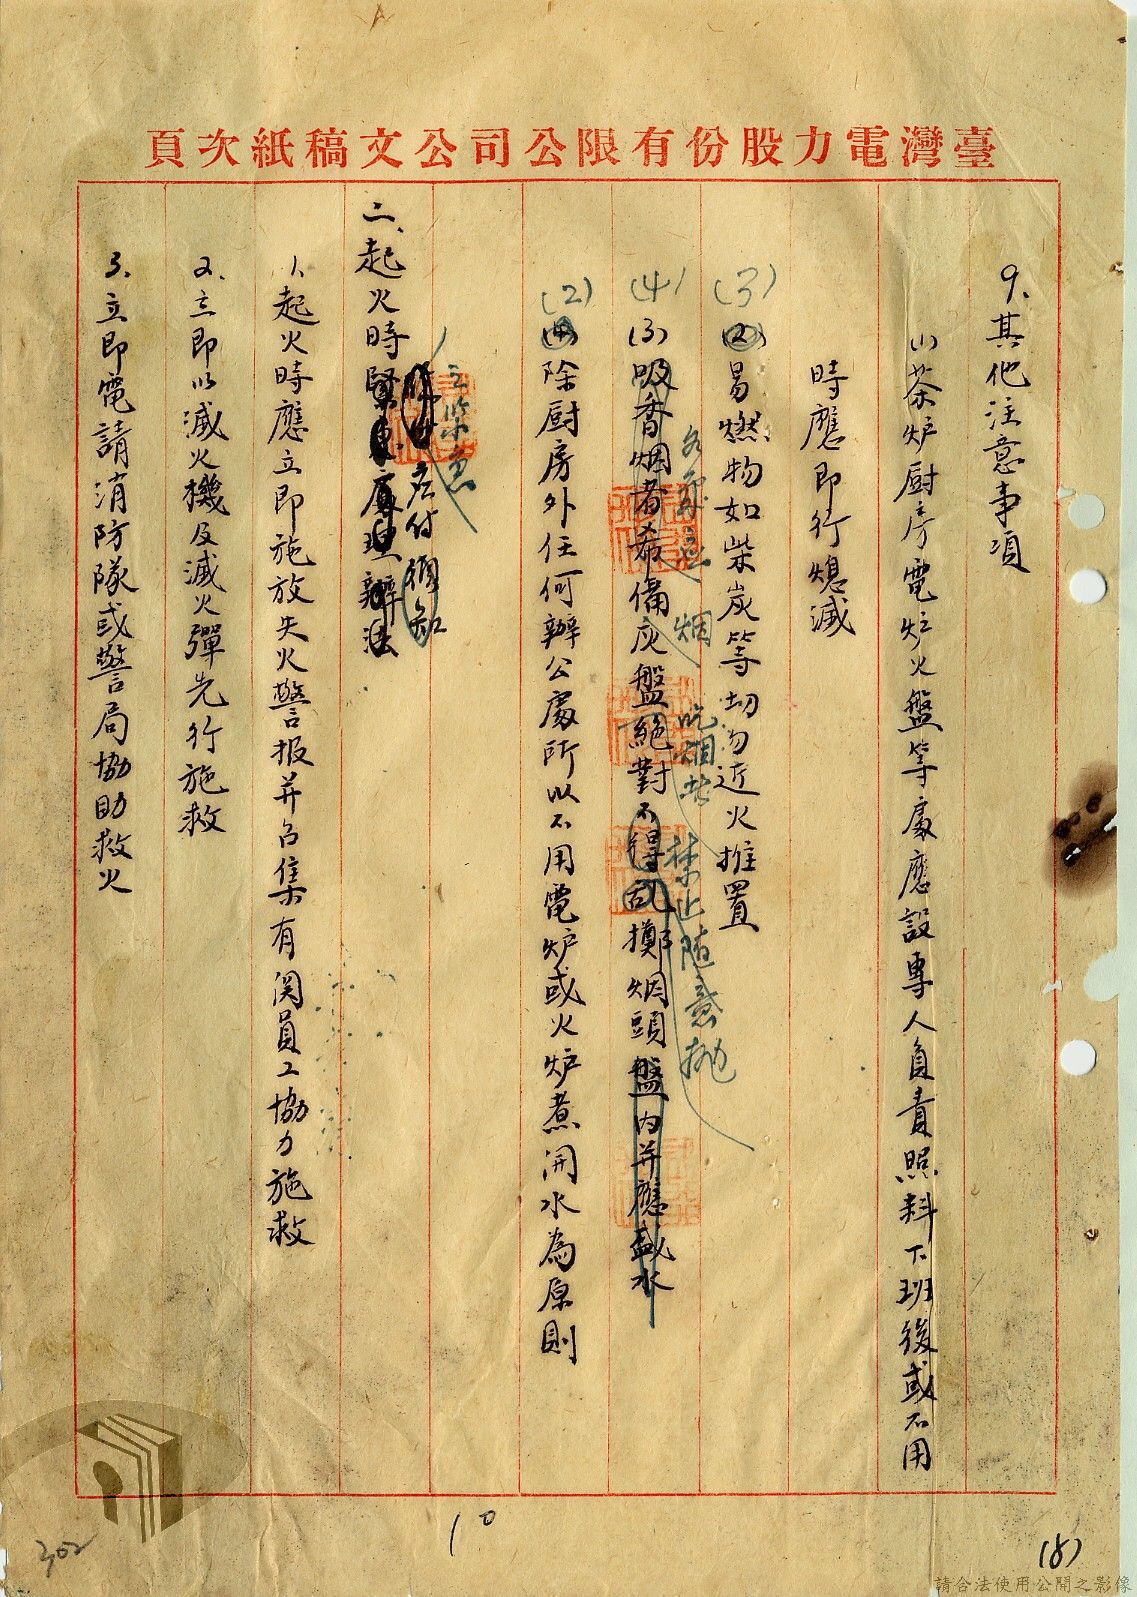 臺灣電力股份有限公司公文稿紙次頁
9、其他注意事項
(1)茶炉厨房電炉火盤等處應設專人負責照料下班後或不用
時應即行熄滅
(3)
(2)易燃物如柴炭等切勿近火堆置
吃烟者 禁止随意抛
(4)
(3)吸香烟者希備灰盤絕對不得乱擲烟頭盤内并應盛水
(2)
除厨房外任何辦公處所以不用電炉或火炉煮開水為原則
之緊急
應付須知
二、起火時緊急處理辦法
1、起火時應立即施放失火警报并召集有関員工協力施救
2、立即以滅火機及滅火彈先行施救
3、立即電請消防隊或警局協助救火
10
(8)
302
請合法使用公開之影像